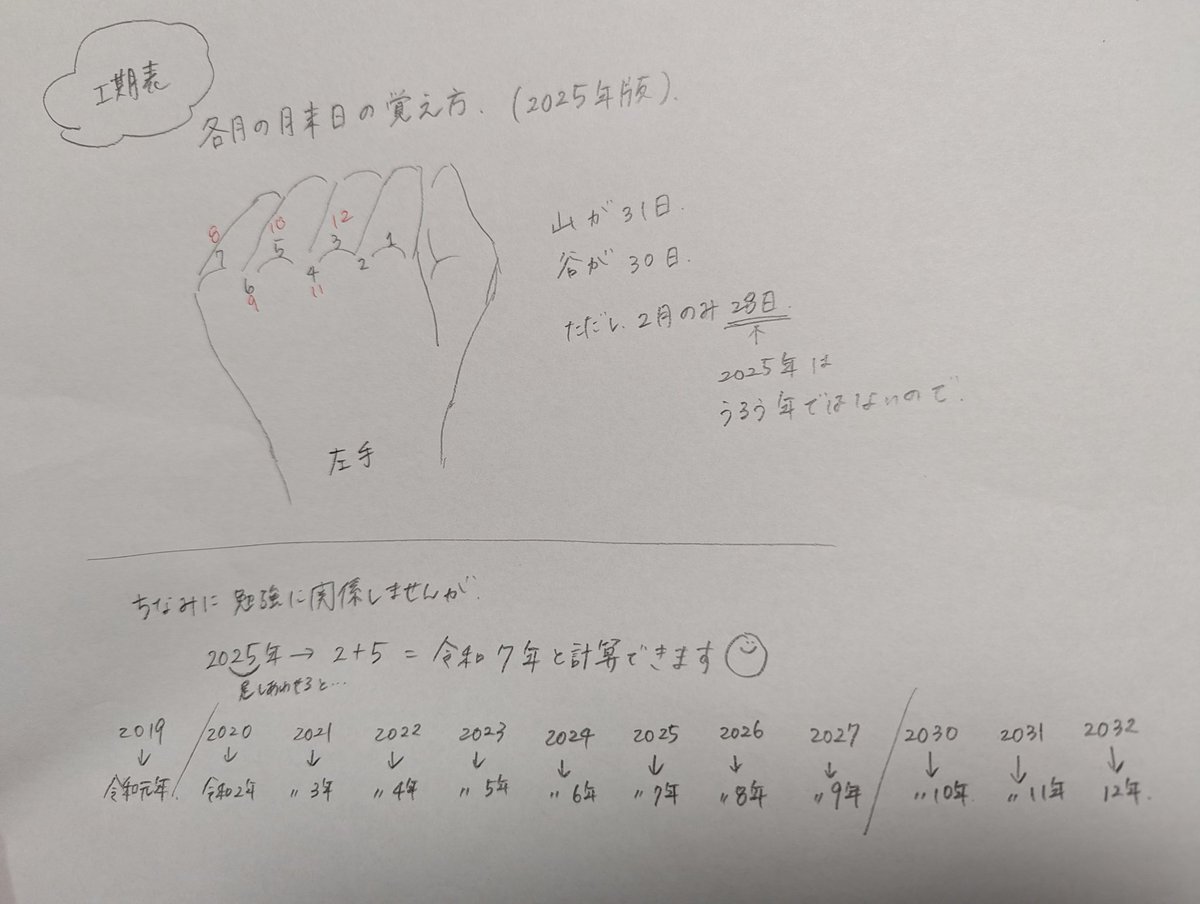 工期表
各月の月末日の覚え方.(2025年版).
8 10 12
7 5 3 1
6 4 2
9 11
山が31日.
谷が30日.
ただし、2月のみ28日.
↑
2025年は
うるう年ではないので.
左手
ちなみに勉強に関係しませんが.
2025年→2+5=令和7年と計算できます
足しあわせると…
2019 / 2020 2021 2022 2023 2024 2025 2026 2027 / 2030 2031 2032
↓ ↓ ↓ ↓ ↓ ↓ ↓ ↓ ↓ ↓ ↓ ↓
令和元年. 令和2年 〃3年 〃4年 〃5年 〃6年 〃7年 〃8年 〃9年 〃10年 〃11年 12年.